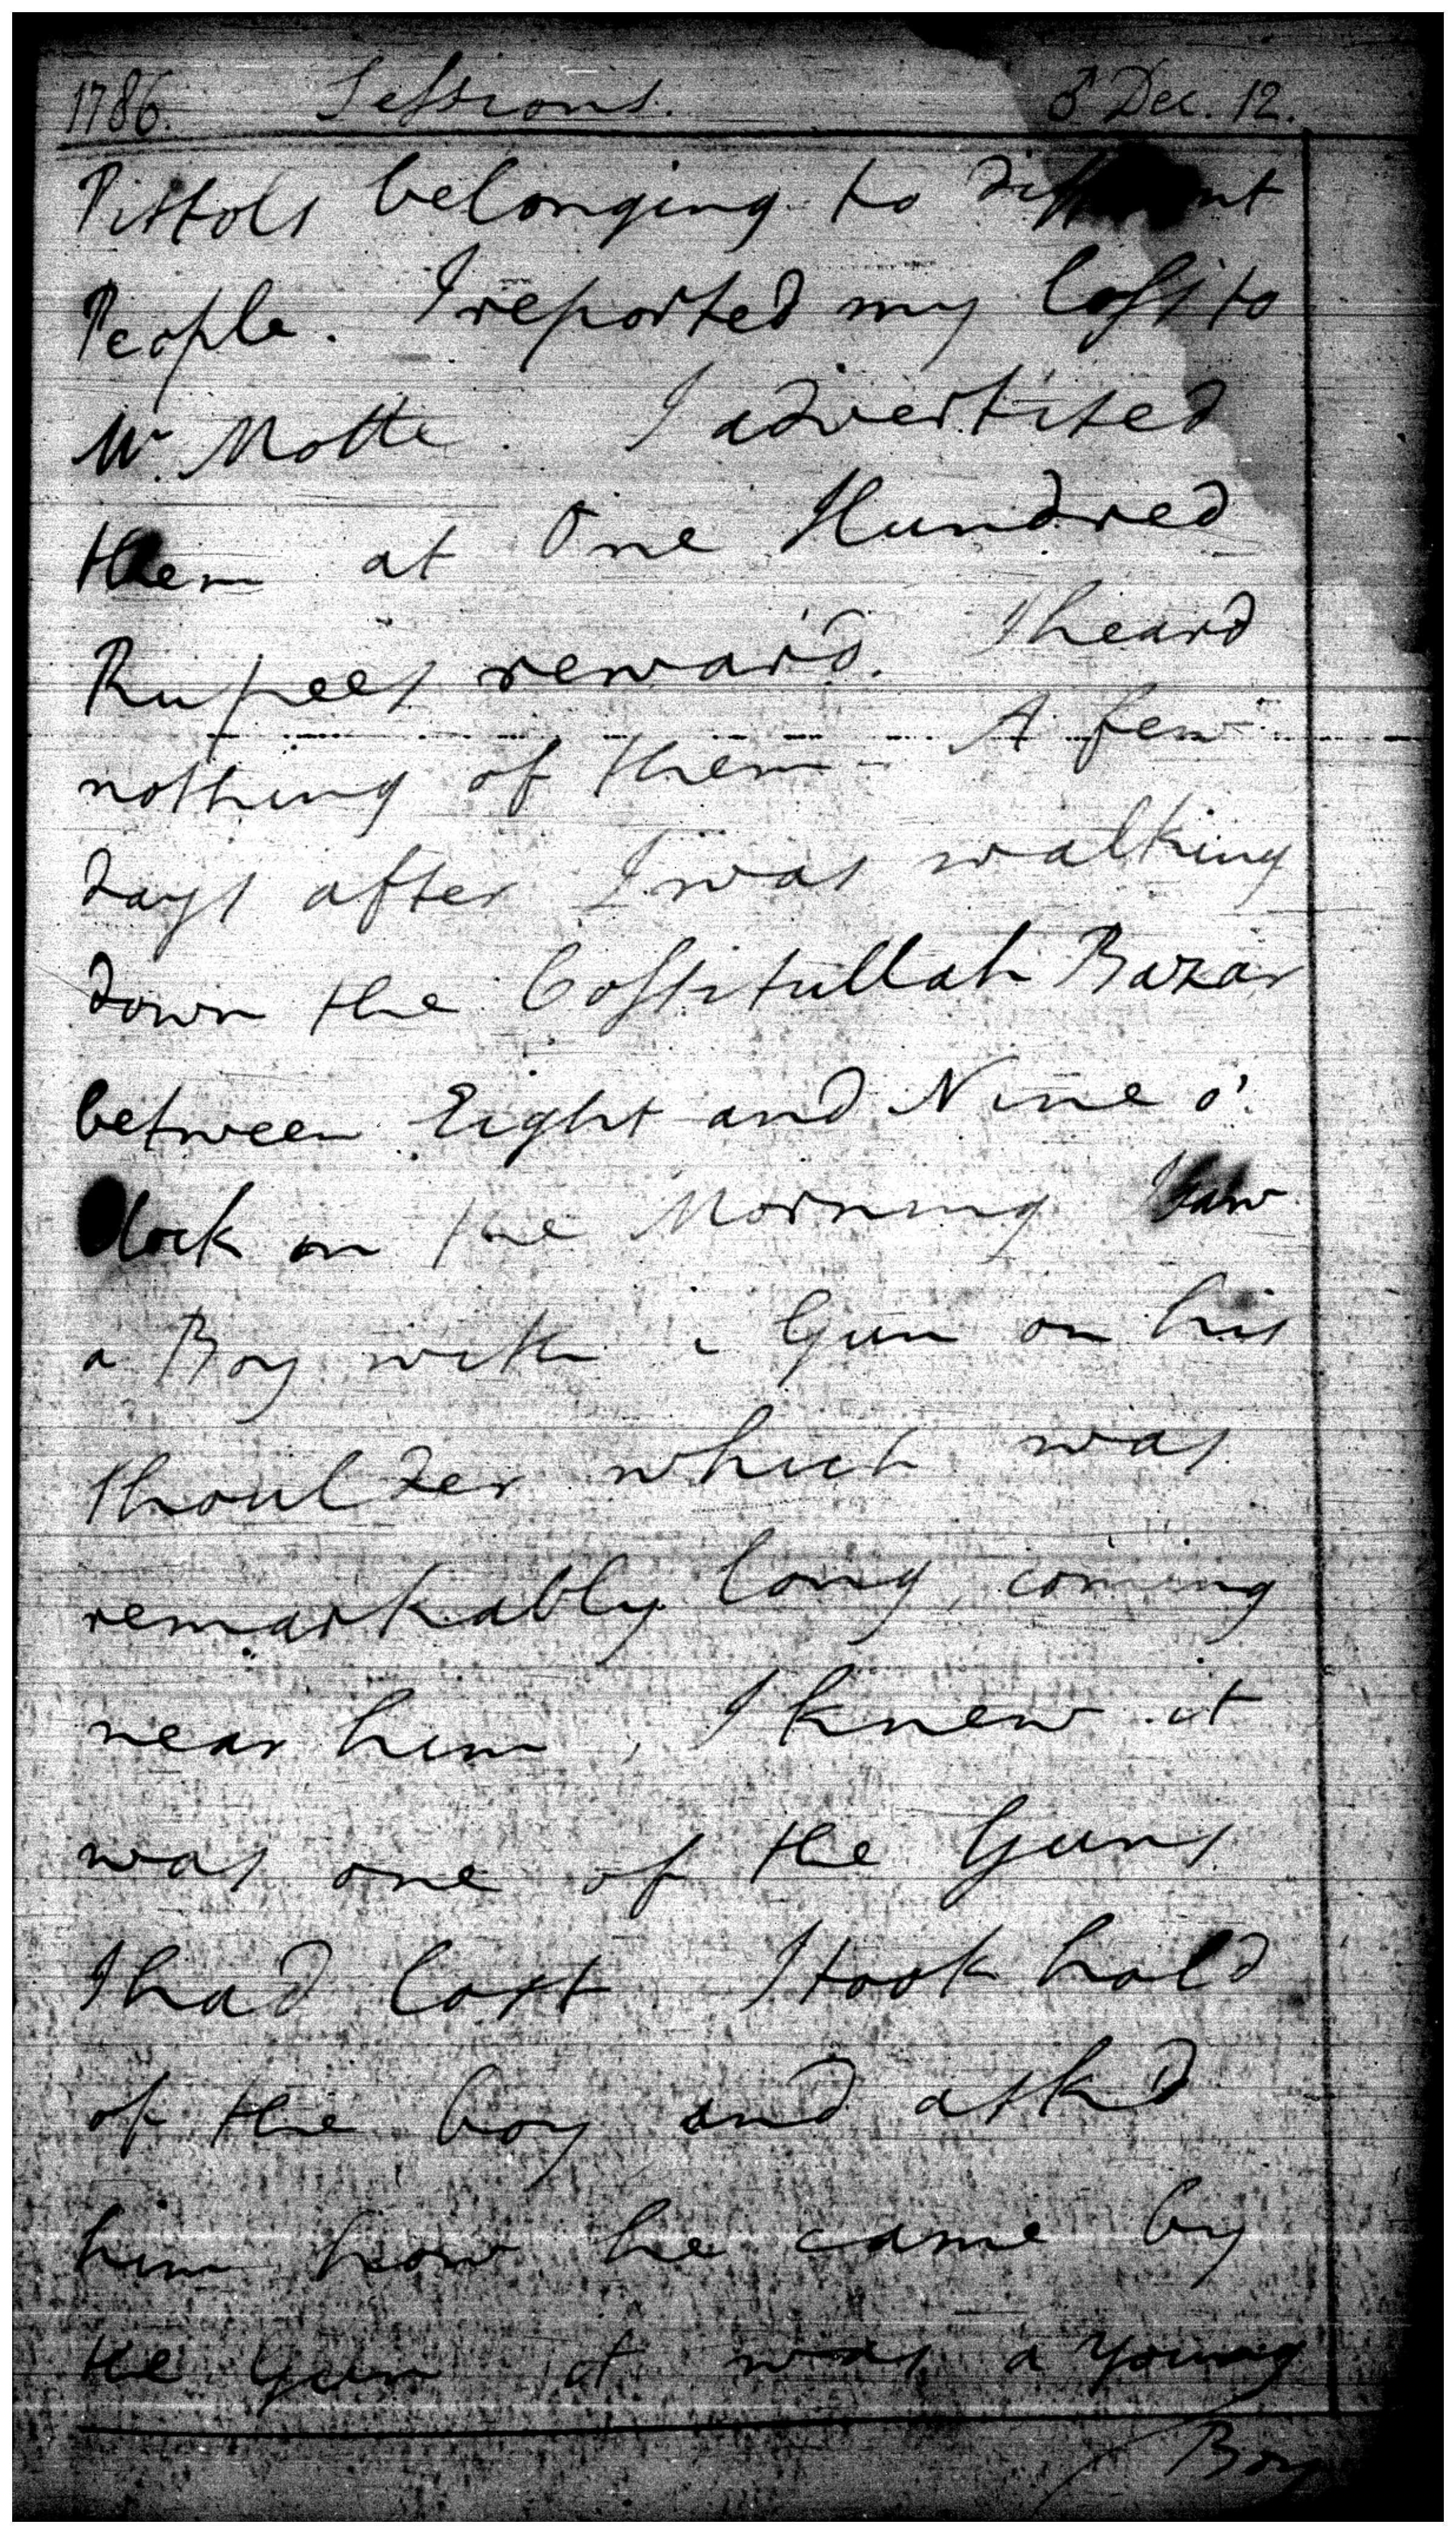 1786. Sessions. ♂ Dec. 12.
Pistols belonging to different
People. I reported my loss to
Mr. Motte. I advertised
them at One Hundred
Rupees reward. I heard
nothing of them. A few
days after I was walking
down the Cossitullah Bazar
between Eight and Nine o'
Clock in the Morning I saw
a Boy with a Gun on his
shoulder which was
remarkably long, coming
near him, I knew it
was one of the Guns
I had lost. I took hold
of the boy and ask'd
him how he came by
the Gun it was a young
Boy